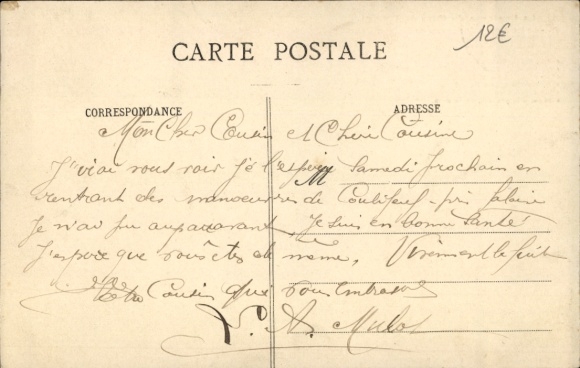 12€
CARTE POSTALE
CORRESPONDANCE
ADRESSE
Mon Cher Cousin et Chère Cousine
J'irai vous voir je l'espère Samedi prochain en
rentrant des manoeuvres de Coulibeuf près Falaise
Je n'ai pu auparavant, Je suis en bonne santé
J'espère que vous êtes de même, Vivement le
Votre Cousin qui vous embrasse